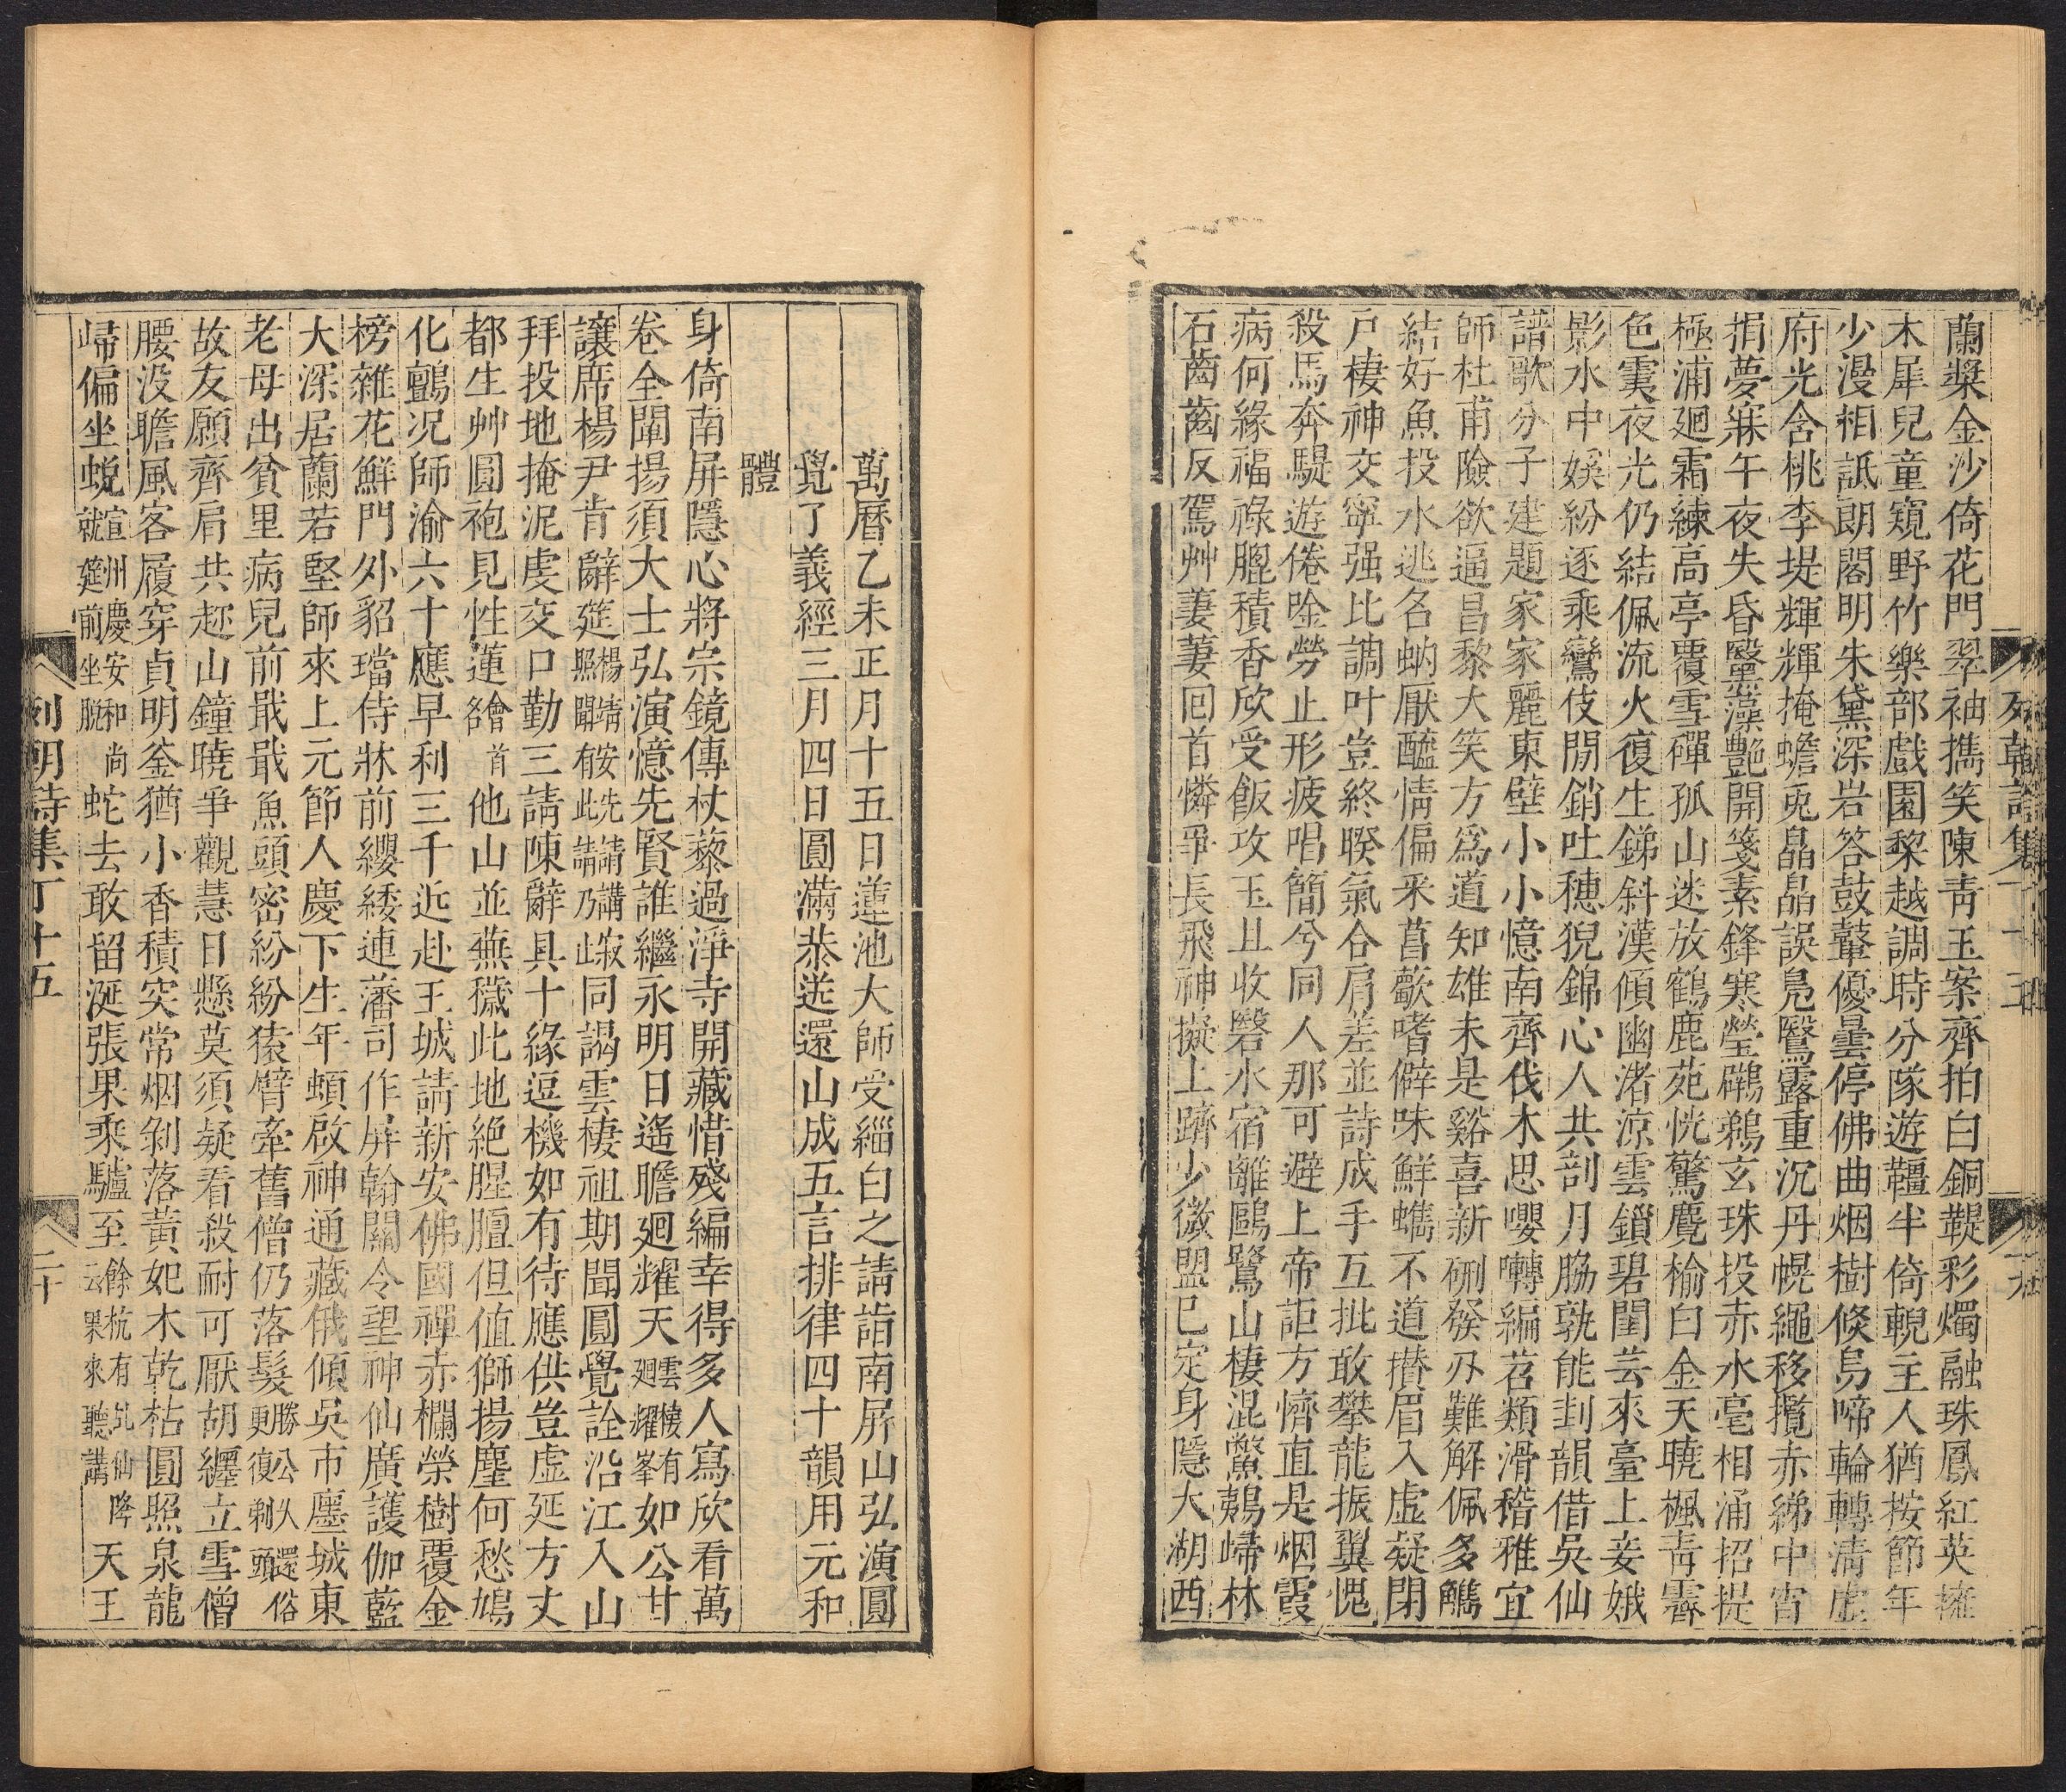 蘭槳金沙倚花門翠袖攜笑陳靑玉案齊拍白銅鞮彩燭融珠鳳紅英擁
木犀兒童窺野竹樂部戲園棃越調時分隊遊韁半倚輗主人猶按節年
少漫相詆朗閣明朱黛深岩答鼓鼙優曇停佛曲烟樹倐烏啼輪轉淸虛
府光含桃李堤輝輝掩蟾兎晶晶誤鳬鷖露重沉丹幌繩移攬赤綈中宵
捐夢寐午夜失昏黳藻艷開箋素鋒寒瑩鷿鵜玄珠投赤水毫相涌招提
極浦廻霜練高亭覆雪磾孤山迷放鶴鹿苑恍驚麑榆白金天曉楓靑霽
色霙夜光仍結佩流火復生銻斜漢傾幽渚涼雲鎖碧閨芸來臺上妾娥
影水中娛紛逐乘鸞伎閒銷吐穗猊錦心人共剖月脇孰能刲韻借吳仙
譜歌分子建題家家麗東壁小小憶南齊伐木思嚶囀編苕類滑稽雅宜
師杜甫險欲逼昌黎大笑方爲道知雄未是谿喜新硎發刅難解佩多觿
結好魚投水逃名蚋厭醯情偏釆菖歜嗜僻味鮮蠵不道㩥眉入虛疑閉
戸棲神交寧强比調叶豈終睽氣合肩差並詩成手互批敢攀龍振翼愧
殺馬奔騠遊倦唫勞止形疲唱簡兮同人那可避上帝詎方懠直是烟霞
病何緣福祿膍積香欣受飯攻玉且收磬水宿離鷗鷺山棲混鷩鶈歸林
石齒齒囪反駕艸萋萋囘首憐爭長飛神擬上躋少微盟已定身隱大湖西
列朝詩集 丁十五 十九
萬曆乙未正月十五日蓮池大師受緇白之請詣南屏山弘演圓
覺了義經三月四日圓滿恭送還山成五言排律四十韻用元和
體
身倚南屏隱心將宗鏡傳杖藜過淨寺開藏惜殘編幸得多人寫欣看萬
卷全闡揚須大士弘演憶先賢誰繼永明日遙瞻廻耀天雲棲有廻耀峯如公甘
讓席楊尹肯辭筵楊靖安先請講寂照聞有此請乃止同謁雲棲祖期聞圓覺詮沿江入山
拜投地掩泥虔交口勤三請陳辭具十緣逗機如有待應供豈虛延方丈
都生艸圓袍見性蓮會首名他山並蕪穢此地絶腥膻但値獅揚麈何愁鳩
化鸇况師渝六十應早利三千近赴王城請新安佛國禪赤欄榮樹覆金
榜雜花鮮門外貂璫侍牀前纓緌連藩司作屏翰關令望神仙廣護伽藍
大深居蘭若堅師來上元節人慶下生年頓啟神通藏俄傾吳市廛城東
老母出貧里病兒前戢戢魚頭密紛紛猿臂牽舊僧仍落髮勝公久還俗更復剃頭
故友願齊肩共趂山鐘曉爭觀慧日懸莫須疑看殺耐可厭胡纏立雪僧
腰没瞻風客履穿貞明釜猶小香積突常烟剝落黃妃木乾枯圓照泉龍
歸偏坐蛻宣州慶安和尚就筵前坐脫蛇去敢留涎張果乘驢至餘杭有乩仙降云果來聽講天王
列朝詩集 丁十五 二十